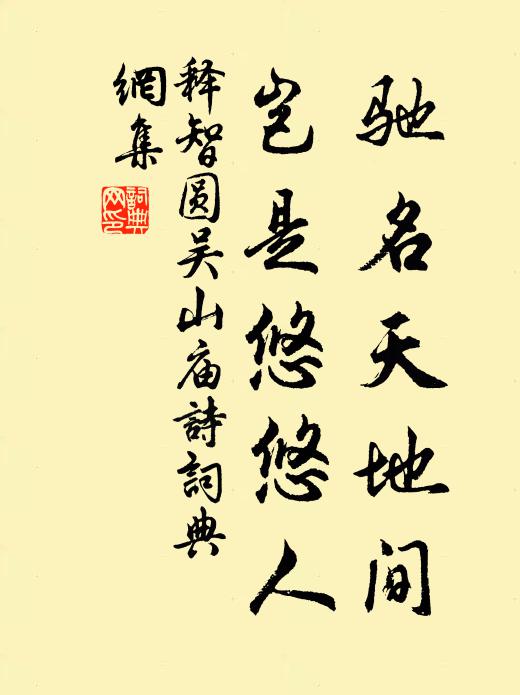 驰名天地间
岂是悠悠人
释智圆吴山庙詩詞典
網集
詞典
网印